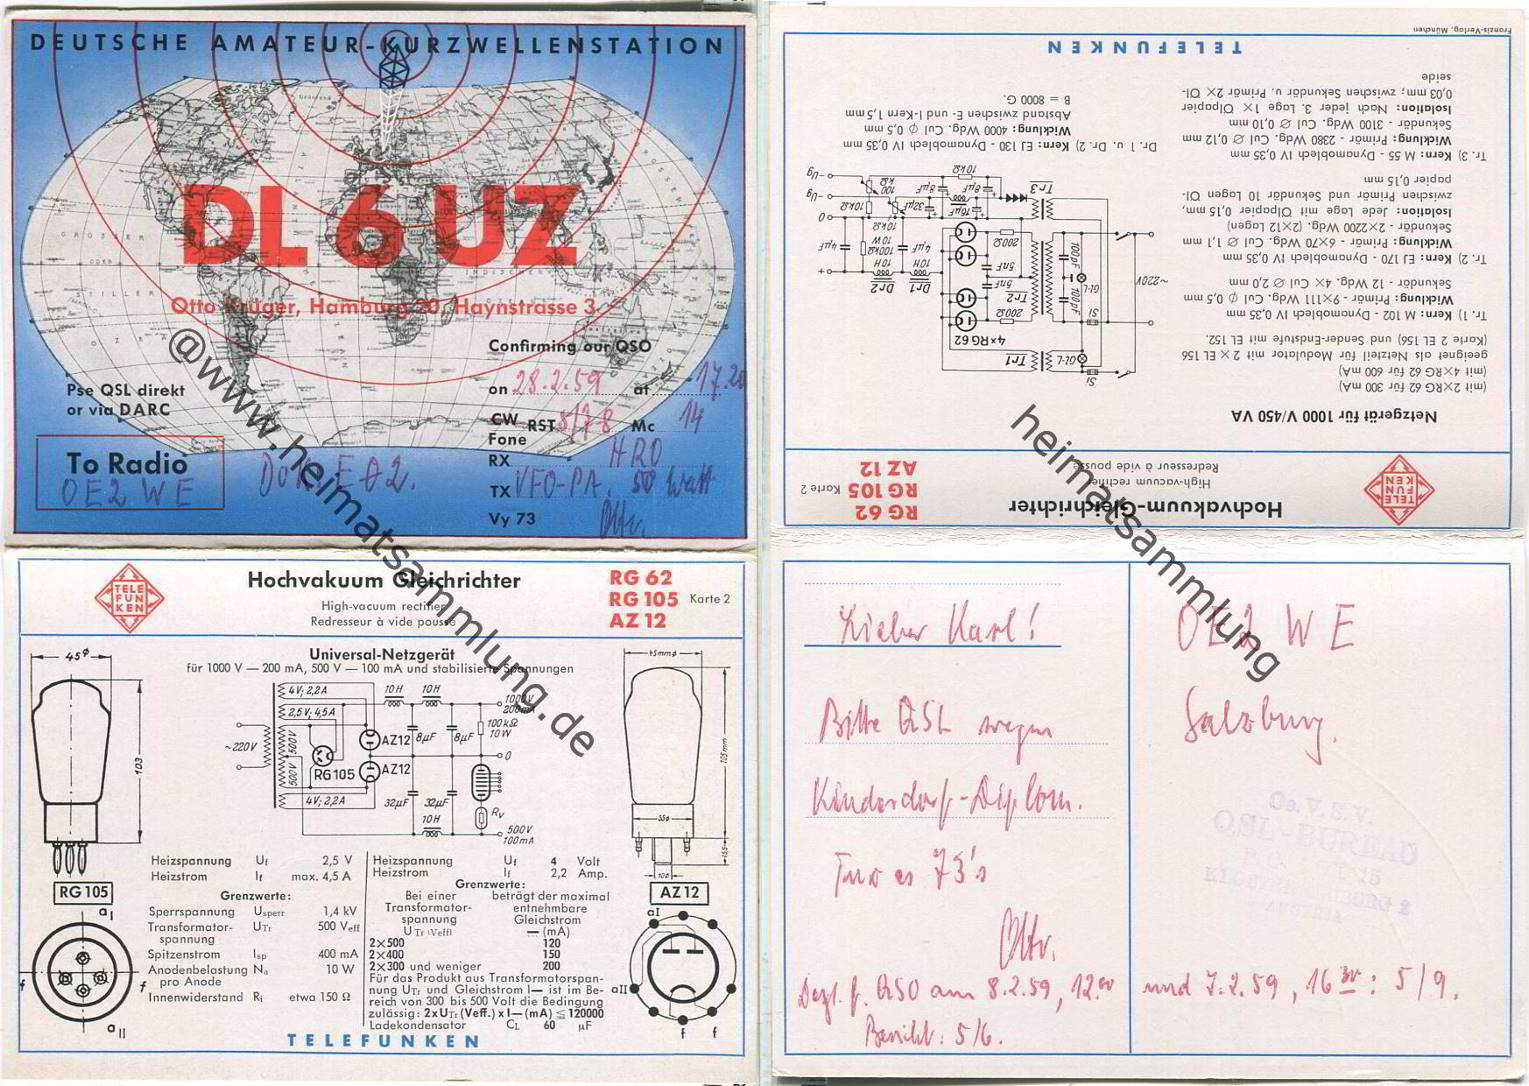 DEUTSCHE AMATEUR-KURZWELLENSTATION
DL 6 UZ
Otto Krüger, Hamburg 20, Haynstrasse 3
Confirming our QSO
Pse QSL direkt
or via DARC
on 28.2.59 at 17.20
CW
Fone
RST 5/7-8 Mc 14
To Radio
OE2WE
DOK EØ2.
RX HRO
TX VFO-PA. 50 Watt
Vy 73 Otto.
TELEFUNKEN
Hochvakuum Gleichrichter
High-vacuum rectifier
Redresseur à vide pousse
RG 62
RG 105
AZ 12
Karte 2
Universal-Netzgerät
für 1000 V — 200 mA, 500 V — 100 mA und stabilisierte Spannungen
45⌀
103
4V; 2,2A
2,5V; 4,5A
~220V
500V
500V
RG 105
4V; 2,2A
AZ12
AZ12
10H
10H
8µF
8µF
32µF
32µF
10H
1000V
200mA
100kΩ
10W
0
Rv
500V
100mA
45mm⌀
105mm
35⌀
10⌀
RG 105
AZ 12
a I
a II
f
f
aI
aII
f
f
Heizspannung Uf 2,5 V
Heizstrom If max. 4,5 A
Grenzwerte:
Sperrspannung Usperr 1,4 kV
Transformator-
spannung UTr 500 Veff
Spitzenstrom Isp 400 mA
Anodenbelastung Na 10 W
pro Anode
Innenwiderstand Ri etwa 150 Ω
Heizspannung Uf 4 Volt
Heizstrom If 2,2 Amp.
Grenzwerte:
Bei einer beträgt der maximal
Transformator- entnehmbare
spannung Gleichstrom
UTr (Veff) — (mA)
2×500 120
2×400 150
2×300 und weniger 200
Für das Produkt aus Transformatorspan-
nung UTr und Gleichstrom I— ist im Be-
reich von 300 bis 500 Volt die Bedingung
zulässig: 2xUTr (Veff.) x I—(mA) ≦120000
Ladekondensator CL 60 µF
TELEFUNKEN
Hochvakuum-Gleichrichter
High-vacuum rectifier
Redresseur à vide pousse
RG 62
RG 105
AZ 12
Karte 2
TELEFUNKEN
Netzgerät für 1000 V/450 VA
(mit 2×RG 62 für 300 mA)
(mit 4×RG 62 für 600 mA)
geeignet als Netzteil für Modulator mit 2 × EL 156
(Karte 2 EL 156) und Sender-Endstufe mit EL 152.
Tr. 1) Kern: M 102 - Dynamoblech IV 0,35 mm
Wicklung: Primär - 9×111 Wdg. Cul ⌀ 0,5 mm
Sekundär - 12 Wdg. 4× Cul ⌀ 2,0 mm
Tr. 2) Kern: EJ 170 - Dynamoblech IV 0,35 mm
Wicklung: Primär - 6×70 Wdg. Cul ⌀ 1,1 mm
Sekundär - 2×2200 Wdg. (2×12 Lagen)
Isolation: Jede Lage mit Ölpapier 0,15 mm,
zwischen Primär und Sekundär 10 Lagen Öl-
papier 0,15 mm
Tr. 3) Kern: M 55 - Dynamoblech IV 0,35 mm
Wicklung: Primär - 2380 Wdg. Cul ⌀ 0,12 mm
Sekundär - 3100 Wdg. Cul ⌀ 0,10 mm
Isolation: Nach jeder 3. Lage 1× Ölpapier
0,03 mm; zwischen Sekundär u. Primär 2× Öl-
seide
Si
GL-L
Tr1
4×RG 62
200Ω
Tr2
5nF
5nF
200Ω
100pF
100pF
GL-L
Si
~220V
Dr1
10H
Dr2
10H
4µF
100kΩ
10W
4µF
+
0
-Ug
-Ug
Tr3
16µF
32µF
8µF
8µF
10kΩ
10kΩ
10kΩ
100
kΩ
Dr. 1 u. Dr. 2) Kern: EJ 130 - Dynamoblech IV 0,35 mm
Wicklung: 4000 Wdg. Cul ⌀ 0,5 mm
Abstand zwischen E- und I-Kern 1,5 mm
B = 8000 G.
TELEFUNKEN
Franzis-Verlag, München
Lieber Karl!
Bitte QSL wegen
Kinderdorf-Diplom.
73's
Otto.
Bezl. f. QSO am 8.2.59, 12.00
Bericht: 5/6.
OE2WE
Salzburg.
und 7.2.59, 16 30: 5/9.
Oe.V.S.V.
QSL-BUREAU
AUSTRIA
@www.heimatsammlung.de
heimatsammlung